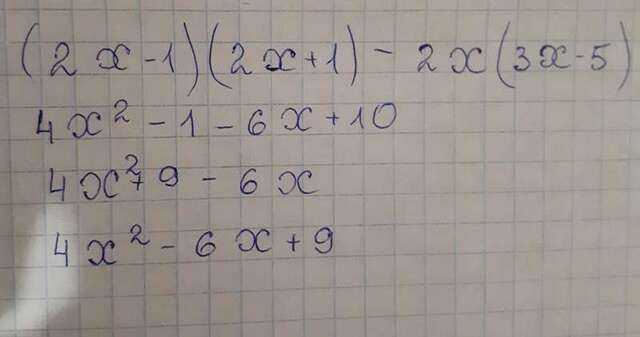 (2x-1)(2x+1) - 2x(3x-5)
4x² - 1 - 6x + 10
4x² + 9 - 6x
4x² - 6x + 9